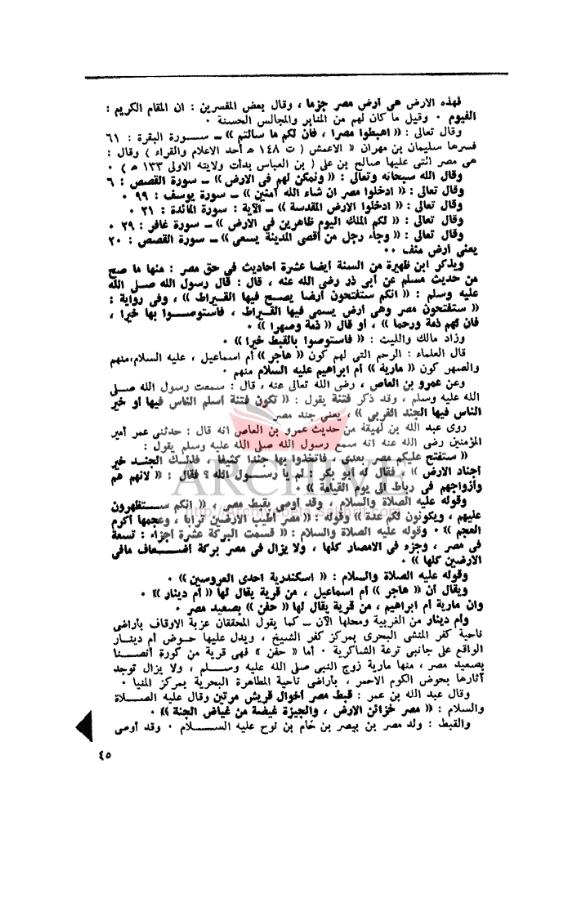 فهذه الارض هى ارض مصر جزما ، وقال بعض المفسرين : ان المقام الكريم :
الفيوم . وقيل ما كان لهم من المنابر والمجالس الحسنة .
وقال تعالى : « اهبطوا مصرا ، فان لكم ما سالتم » ــ سـورة البقرة : ٦١
فسرها سليمان بن مهران « الاعمش ( ت ١٤٨ هـ أحد الاعلام والقراء ) وقال :
هى مصر التى عليها صالح بن على ( بن العباس بدأت ولايته الاولى ١٣٣ هـ ) .
وقال الله سبحانه وتعالى : « ونمكن لهم فى الارض » ــ سورة القصص : ٦
وقال تعالى : « ادخلوا مصر ان شاء الله آمنين » ــ سورة يوسف : ٩٩ .
وقال تعالى : « ادخلوا الارض المقدسة » ــ الآية : سورة المائدة : ٢١ .
وقال تعالى : « لكم الملك اليوم ظاهرين فى الارض » ــ سورة غافر : ٢٩ .
وقال تعالى : « وجاء رجل من أقصى المدينة يسعى » ــ سورة القصص : ٢٠
يعنى ارض منف ..
ويذكر ابن ظهيرة من السنة أيضا عشرة احاديث فى حق مصر : منها ما صح
من حديث مسلم عن أبى ذر رضى الله عنه ، قال : قال رسول الله صلى الله
عليه وسلم : « انكم ستفتحون أرضا يصــح فيها القـيراط » ، وفى رواية :
« ستفتحون مصر وهى ارض يسمى فيها القــيراط ، فاستوصــوا بها خيرا ،
فان لهم ذمة ورحما » ، أو قال « ذمة وصهرا » .
وزاد مالك والليث : « فاستوصوا بالقبط خيرا » .
قال العلماء : الرحم التى لهم كون « هاجر » أم اسماعيل ، عليه السلام،منهم
والصهر كون « مارية » أم ابراهيم عليه السلام منهم .
وعن عمرو بن العاص ، رضى الله تعالى عنه ، قال : سمعت رسول الله صلى
الله عليه وسلم ، وقد ذكر فتنة يقول : « تكون فتنة أسلم الناس فيها او خير
الناس فيها الجند الغربى » ، يعنى جند مصر
روى عبد الله بن لهيعة من حديث عمرو بن العاص انه قال : حدثنى عمر أمير
المؤمنين رضى الله عنه انه سمع رسول الله صلى الله عليه وسلم يقول :
« ستفتح عليكم مصر بعدى ، فاتخذوا بها جندا كثيفا ، فذلـك الجنـد خير
اجناد الارض » ، فقال له أبو بكر : لم يا رسـول الله ؟ فقال : « لانهم هم
وأزواجهم فى رباط الى يوم القيامة » .
وقوله عليه الصلاة والسلام ، وقد أوصى بقبط مصر ، « إنكم ستظهرون
عليهم ، ويكونون لكم عدة » وقوله : « مصر أطيب الارضين ترابا ، وعجمها أكرم
العجم » . وقوله عليه الصلاة والسلام : « قسمت البركة عشرة اجزاء : تسعة
فى مصر ، وجزء فى الامصار كلها ، ولا يزال فى مصر بركة اضـــعاف مافى
الارضين كلها » .
وقوله عليه الصلاة والسلام : « اسكندرية احدى العروسين » .
ويقال ان « هاجر » أم اسماعيل ، من قرية يقال لها « أم دينار » .
وان مارية أم ابراهيم ، من قرية يقال لها « حفن » بصعيد مصر .
وأم دينار من الغربية ومحلها الآن ــ كما يقول المحققان عزبة الاوقاف بأراضى
ناحية كفر المنشى البحرى بمركز كفر الشيخ ، ويدل عليها حـوض أم دينـار
الواقع على جانبى ترعة الشاكرية . أما « حفن » فهى قرية من كورة أنصــنا
بصعيد مصر ، منها مارية زوج النبى صلى الله عليه وســلم ، ولا يزال توجد
آثارها بحوض الكوم الاحمر ، بأراضى ناحية المطاهرة البحرية بمركز المنيا .
وقال عبد الله بن عمر : قبط مصر أخوال قريش مرتين وقال عليه الصلاة
والسلام : « مصر خزائن الارض ، والجيزة غيضة من غياض الجنة » .
والقبط : ولد مصر بن بيصر بن حام بن نوح عليه الســـلام . وقد أوصى
٤٥
ARCHIVE